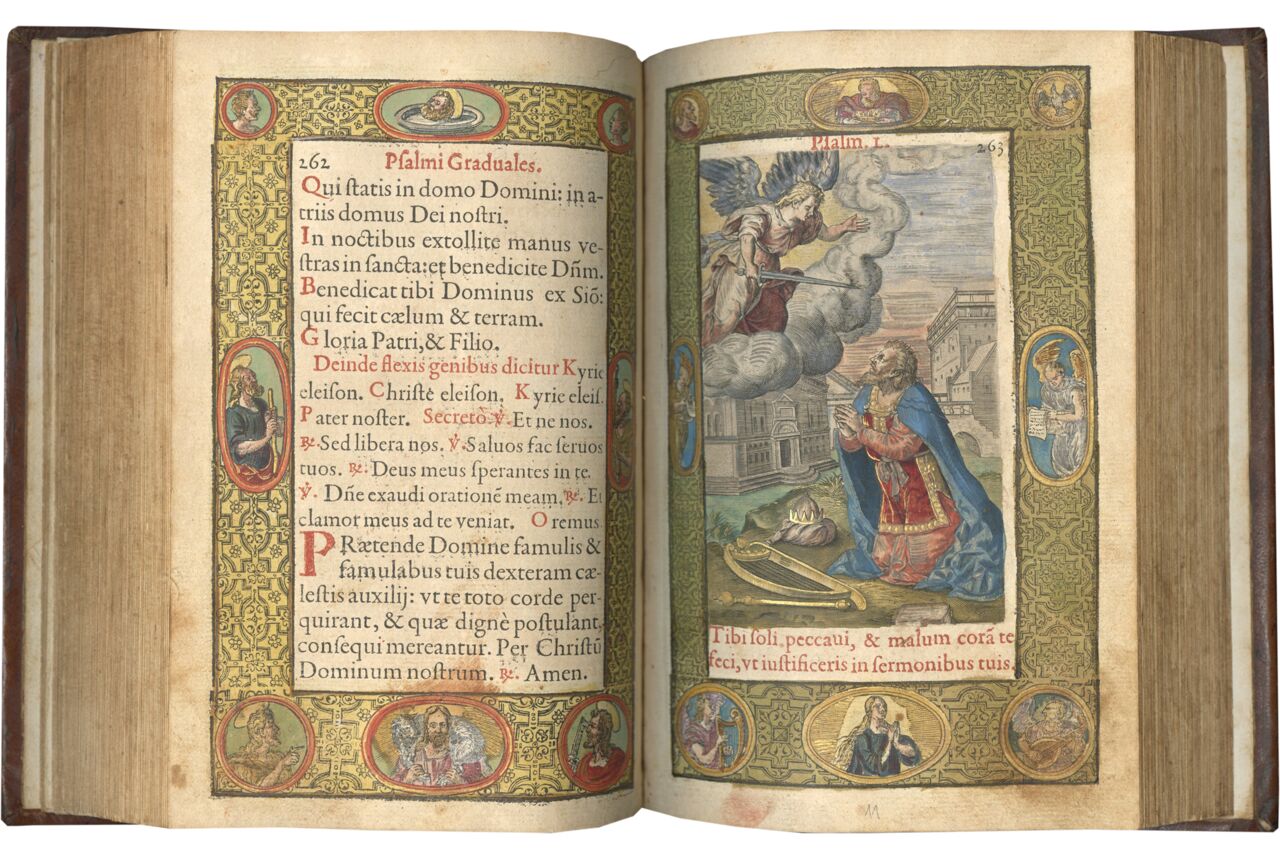 262 Pſalmi Graduales.
Qui ſtatis in domo Domini: in a-
triis domus Dei noſtri.
In noctibus extollite manus ve-
ſtras in ſancta: et benedicite Dñm.
Benedicat tibi Dominus ex Siō:
qui fecit cælum & terram.
Gloria Patri, & Filio.
Deinde flexis genibus dicitur Kyrie
eleiſon. Chriſtè eleiſon. Kyrie eleiſ.
Pater noſter. Secretò. ℣. Et ne nos.
℞. Sed libera nos. ℣. Saluos fac ſeruos
tuos. ℞. Deus meus ſperantes in te.
℣. Dñe exaudi orationē meam. ℞. Et
clamor meus ad te veniat. Oremus.
PRætende Domine famulis &
famulabus tuis dexteram cæ-
leſtis auxilij: vt te toto corde per-
quirant, & quæ dignè poſtulant,
conſequi mereantur. Per Chriſtū
Dominum noſtrum. ℞. Amen.
Pſalm. L. 263
Tibi ſoli peccaui, & malum corā te
feci, vt iuſtificeris in ſermonibus tuis.